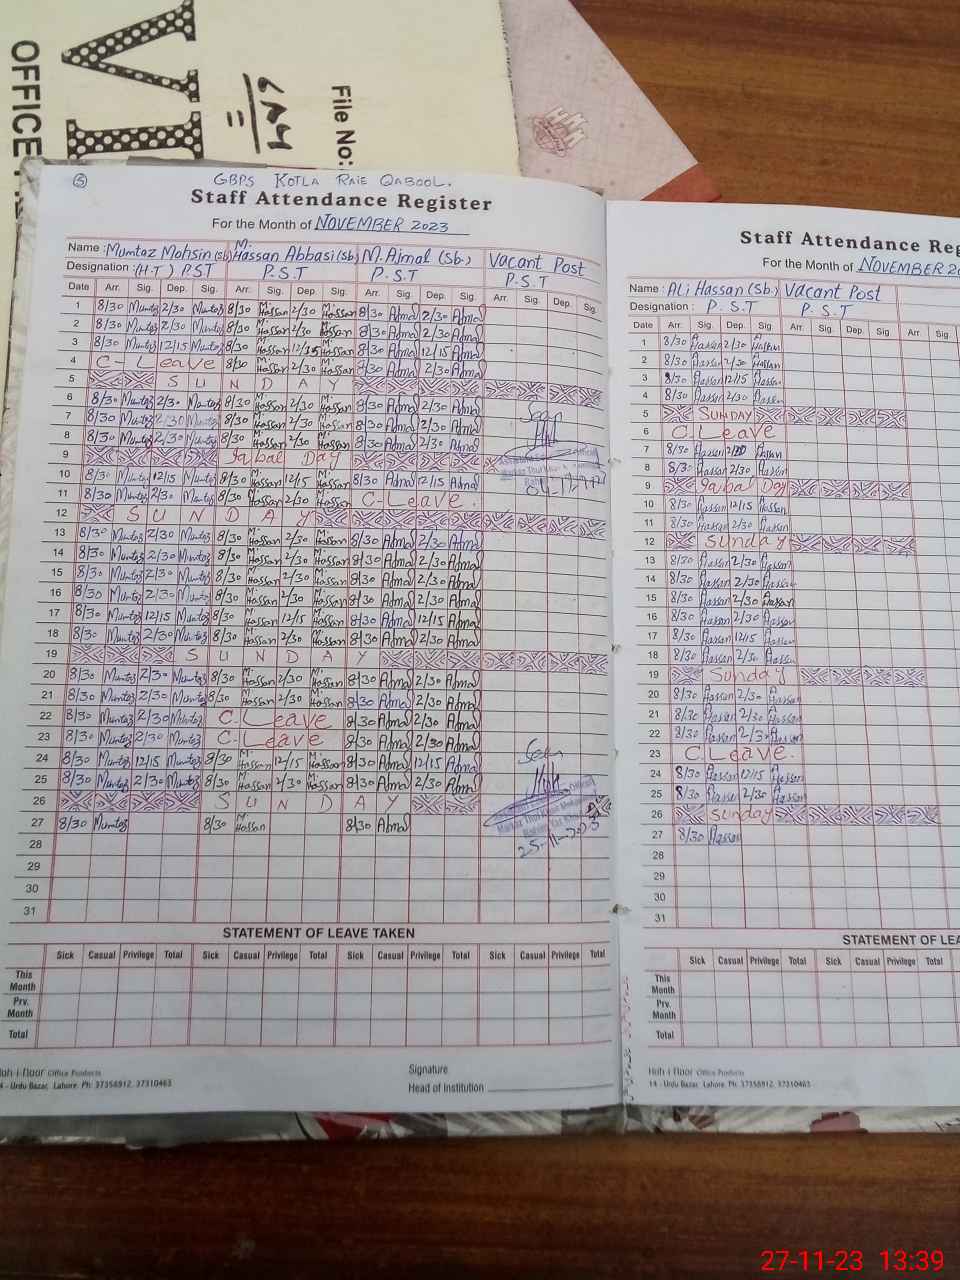 VI
OFFICE
File No:
5
GBPS KOTLA RAIE QABOOL.
Staff Attendance Register
For the Month of NOVEMBER 2023
Name : Mumtaz Mohsin (sb) M. Hassan Abbasi (sb) M. Ajmal (Sb.) Vacant Post
Designation : (H.T) PST P.S.T P.S.T P.S.T
Date Arr. Sig. Dep. Sig. Arr. Sig. Dep. Sig. Arr. Sig. Dep. Sig. Arr. Sig. Dep. Sig.
1 8/30 Mumtaz 2/30 Mumtaz 8/30 M. Hassan 2/30 M. Hassan 8/30 Ajmal 2/30 Ajmal
2 8/30 Mumtaz 2/30 Mumtaz 8/30 M. Hassan 2/30 M. Hassan 8/30 Ajmal 2/30 Ajmal
3 8/30 Mumtaz 12/15 Mumtaz 8/30 M. Hassan 12/15 M. Hassan 8/30 Ajmal 12/15 Ajmal
4 C-Leave 8/30 M. Hassan 2/30 M. Hassan 8/30 Ajmal 2/30 Ajmal
5 SUNDAY
6 8/30 Mumtaz 2/30 Mumtaz 8/30 M. Hassan 2/30 M. Hassan 8/30 Ajmal 2/30 Ajmal
7 8/30 Mumtaz 2/30 Mumtaz 8/30 M. Hassan 2/30 M. Hassan 8/30 Ajmal 2/30 Ajmal
8 8/30 Mumtaz 2/30 Mumtaz 8/30 M. Hassan 2/30 M. Hassan 8/30 Ajmal 2/30 Ajmal
9 Iqbal Day
10 8/30 Mumtaz 12/15 Mumtaz 8/30 M. Hassan 12/15 M. Hassan 8/30 Ajmal 12/15 Ajmal
11 8/30 Mumtaz 2/30 Mumtaz 8/30 M. Hassan 2/30 M. Hassan C-Leave.
12 SUNDAY
13 8/30 Mumtaz 2/30 Mumtaz 8/30 M. Hassan 2/30 M. Hassan 8/30 Ajmal 2/30 Ajmal
14 8/30 Mumtaz 2/30 Mumtaz 8/30 M. Hassan 2/30 M. Hassan 8/30 Ajmal 2/30 Ajmal
15 8/30 Mumtaz 2/30 Mumtaz 8/30 M. Hassan 2/30 M. Hassan 8/30 Ajmal 2/30 Ajmal
16 8/30 Mumtaz 2/30 Mumtaz 8/30 M. Hassan 2/30 M. Hassan 8/30 Ajmal 2/30 Ajmal
17 8/30 Mumtaz 12/15 Mumtaz 8/30 M. Hassan 12/15 M. Hassan 8/30 Ajmal 12/15 Ajmal
18 8/30 Mumtaz 2/30 Mumtaz 8/30 M. Hassan 2/30 M. Hassan 8/30 Ajmal 2/30 Ajmal
19 SUNDAY
20 8/30 Mumtaz 2/30 Mumtaz 8/30 M. Hassan 2/30 M. Hassan 8/30 Ajmal 2/30 Ajmal
21 8/30 Mumtaz 2/30 Mumtaz 8/30 M. Hassan 2/30 M. Hassan 8/30 Ajmal 2/30 Ajmal
22 8/30 Mumtaz 2/30 Mumtaz C-Leave 8/30 Ajmal 2/30 Ajmal
23 8/30 Mumtaz 2/30 Mumtaz C-Leave 8/30 Ajmal 2/30 Ajmal
24 8/30 Mumtaz 12/15 Mumtaz 8/30 M. Hassan 12/15 M. Hassan 8/30 Ajmal 12/15 Ajmal
25 8/30 Mumtaz 2/30 Mumtaz 8/30 M. Hassan 2/30 M. Hassan 8/30 Ajmal 2/30 Ajmal
26 SUNDAY
27 8/30 Mumtaz 8/30 M. Hassan 8/30 Ajmal
28
29
30
31
Seen
Seen
25-11-2023
STATEMENT OF LEAVE TAKEN
Sick Casual Privilege Total Sick Casual Privilege Total Sick Casual Privilege Total Sick Casual Privilege Total
This Month
Prv. Month
Total
Koh-i-Noor Office Products
14 - Urdu Bazar, Lahore. Ph: 37356912, 37310463
Signature
Head of Institution
Staff Attendance Reg
For the Month of NOVEMBER 20
Name : ALi Hassan (Sb.) Vacant Post
Designation : P.S.T P.S.T
Date Arr. Sig. Dep. Sig. Arr. Sig. Dep. Sig. Arr. Sig.
1 8/30 A Hassan 2/30 A Hassan
2 8/30 A Hassan 2/30 A Hassan
3 8/30 A Hassan 12/15 A Hassan
4 8/30 A Hassan 2/30 A Hassan
5 SUNDAY
6 C.Leave
7 8/30 A Hassan 2/30 A Hassan
8 8/30 A Hassan 2/30 A Hassan
9 Iqbal Day
10 8/30 A Hassan 12/15 A Hassan
11 8/30 A Hassan 2/30 A Hassan
12 Sunday
13 8/30 A Hassan 2/30 A Hassan
14 8/30 A Hassan 2/30 A Hassan
15 8/30 A Hassan 2/30 A Hassan
16 8/30 A Hassan 2/30 A Hassan
17 8/30 A Hassan 12/15 A Hassan
18 8/30 A Hassan 2/30 A Hassan
19 Sunday
20 8/30 A Hassan 2/30 A Hassan
21 8/30 A Hassan 2/30 A Hassan
22 8/30 A Hassan 2/30 A Hassan
23 C Leave.
24 8/30 A Hassan 12/15 A Hassan
25 8/30 A Hassan 2/30 A Hassan
26 Sunday
27 8/30 A Hassan
28
29
30
31
STATEMENT OF LEA
Sick Casual Privilege Total Sick Casual Privilege Total Sick
This Month
Prv. Month
Total
Koh-i-Noor Office Products
14 - Urdu Bazar, Lahore. Ph: 37356912, 37310463
27-11-23 13:39